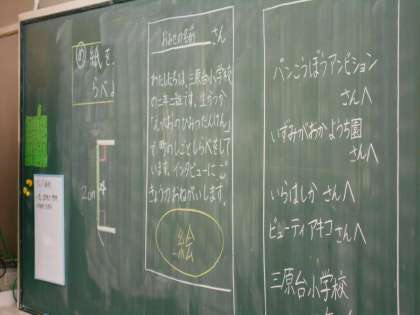 紙を
らべ
2cm
おみせの名前 さん
わたしたちは、三原台小学校
の二年二組です。生かつか
「えがおのひみつたんけん」
で町のしごとしらべをして
います。インタビューにご
きょう力おねがいします。
絵
パンこうぼうアンビション
さんへ
いずみがおかようち園
さんへ
いらはしか さんへ
ビューティアキコ さんへ
三原台小学校